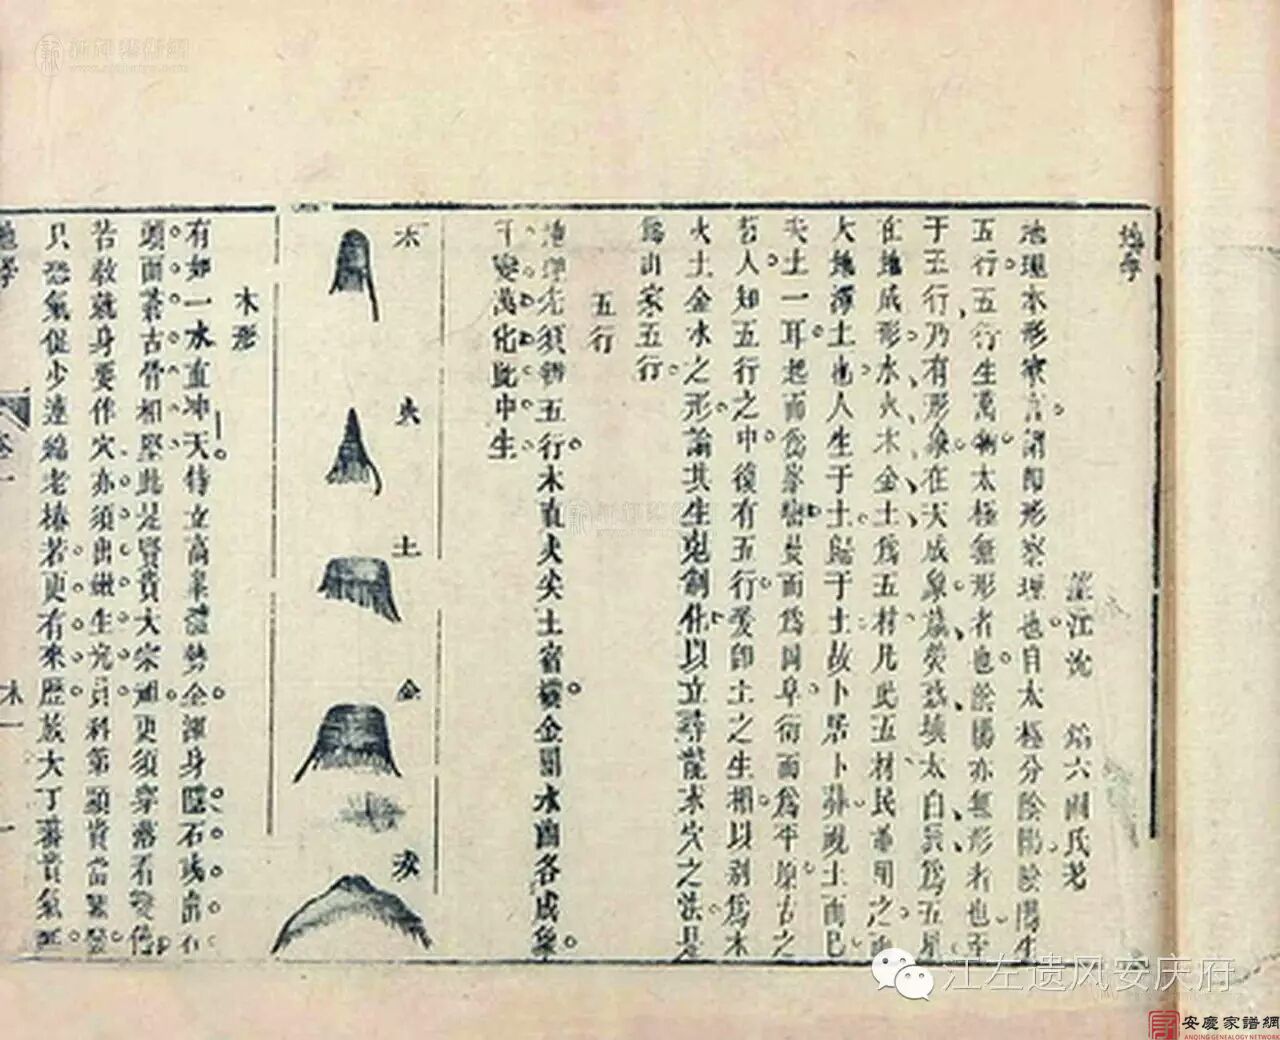 地學
灊江沈 六圃氏著
地理本形家言謂即形察理也自太極分陰陽陰陽生
五行五行生萬物太極無形者也陰陽亦無形者也至
于五行乃有形象在天成象歲熒惑填太白辰為五星
在地成形水火木金土為五材凡此五材民並用之而
大地渾土也人生于土歸于土故卜居卜葬視土而已
夫土一耳起而為峯巒伏而為岡阜衍而為平原古之
若人知五行之中復有五行爰即土之生相以別為木
火土金水之形論其生剋制化以立尋龍求穴之法是
為山家五行
五行
地理先須辨五行木直火尖土宿橫金圓水曲各成象
千變萬化此中生
木
火
土
金
水
木形
有如一水直冲天特立高 勢全渾身 石 出
頭面蒼古骨相堅此是賢貴大宗 更須穿落看變
若教就身要作穴亦須出嫩生 員科第顯貴當
只恐氣促少連綿老椿若更有來歷族大丁蕃貴氣
地學
卷一
木一
一
江左遗风安庆府
安慶家譜網
ANQING GENEALOGY NETWORK